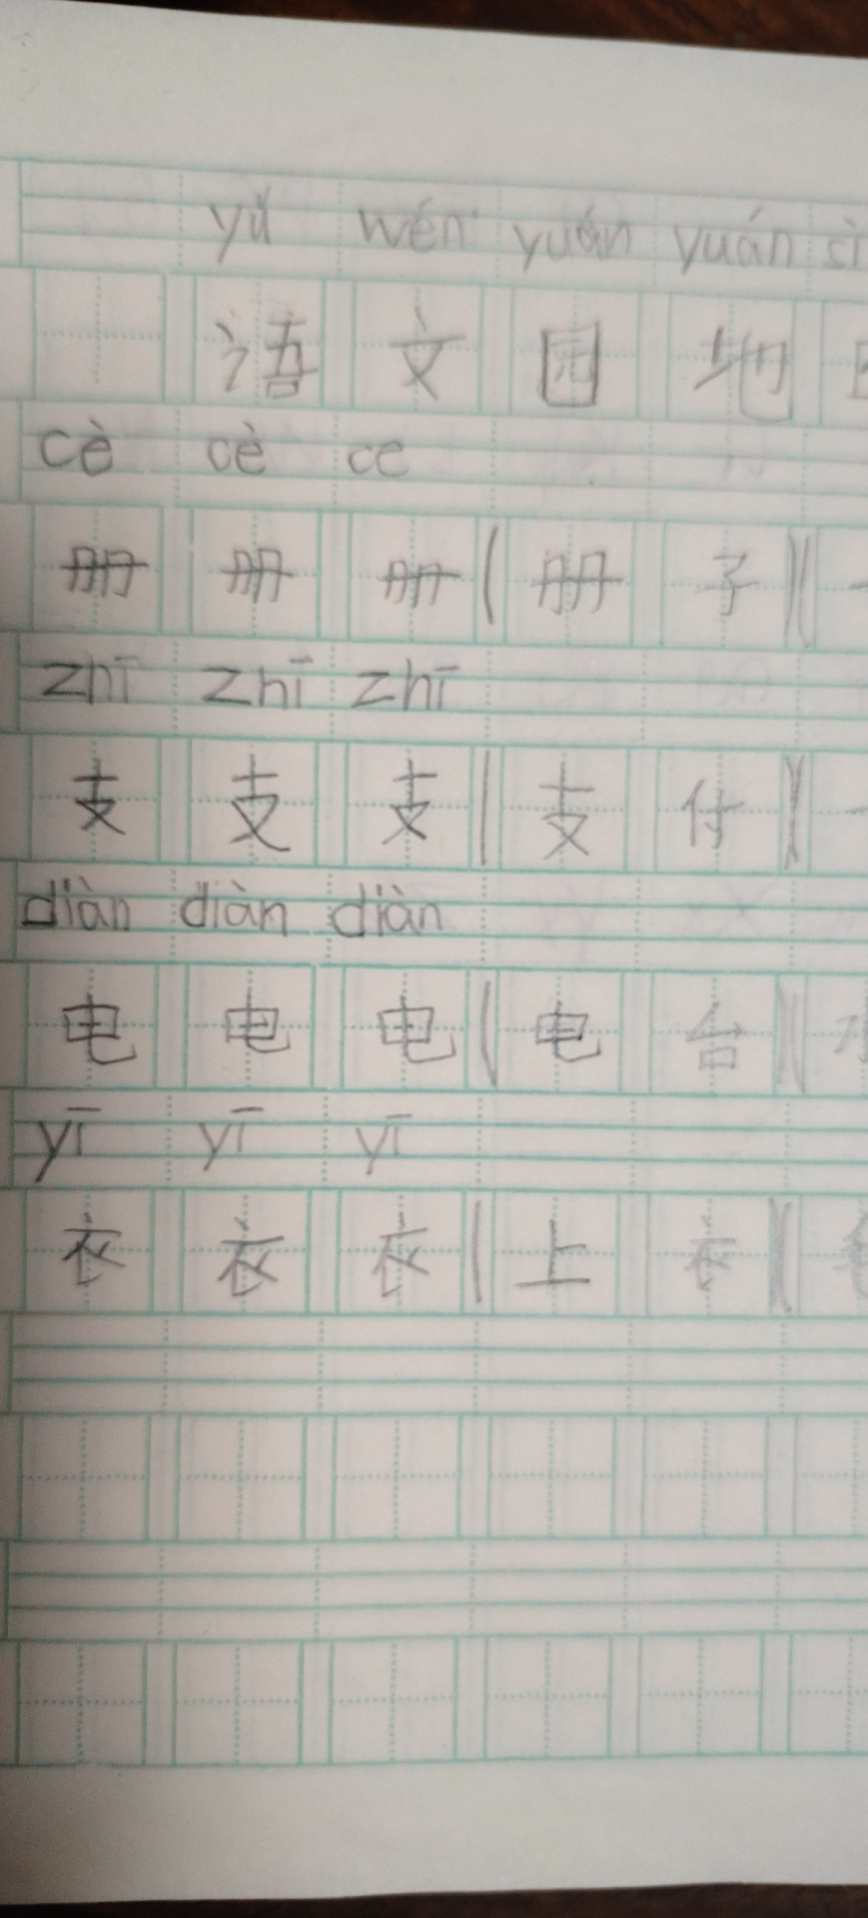 yǔ wén yuán yuán sì
语 文 园 地
cè cè ce
册 册 册 ( 册 子 ) (
zhī zhī zhī
支 支 支 ( 支 付 ) (
diàn diàn diàn
电 电 电 ( 电 台 ) (
yī yī yī
衣 衣 衣 ( 上 衣 ) (